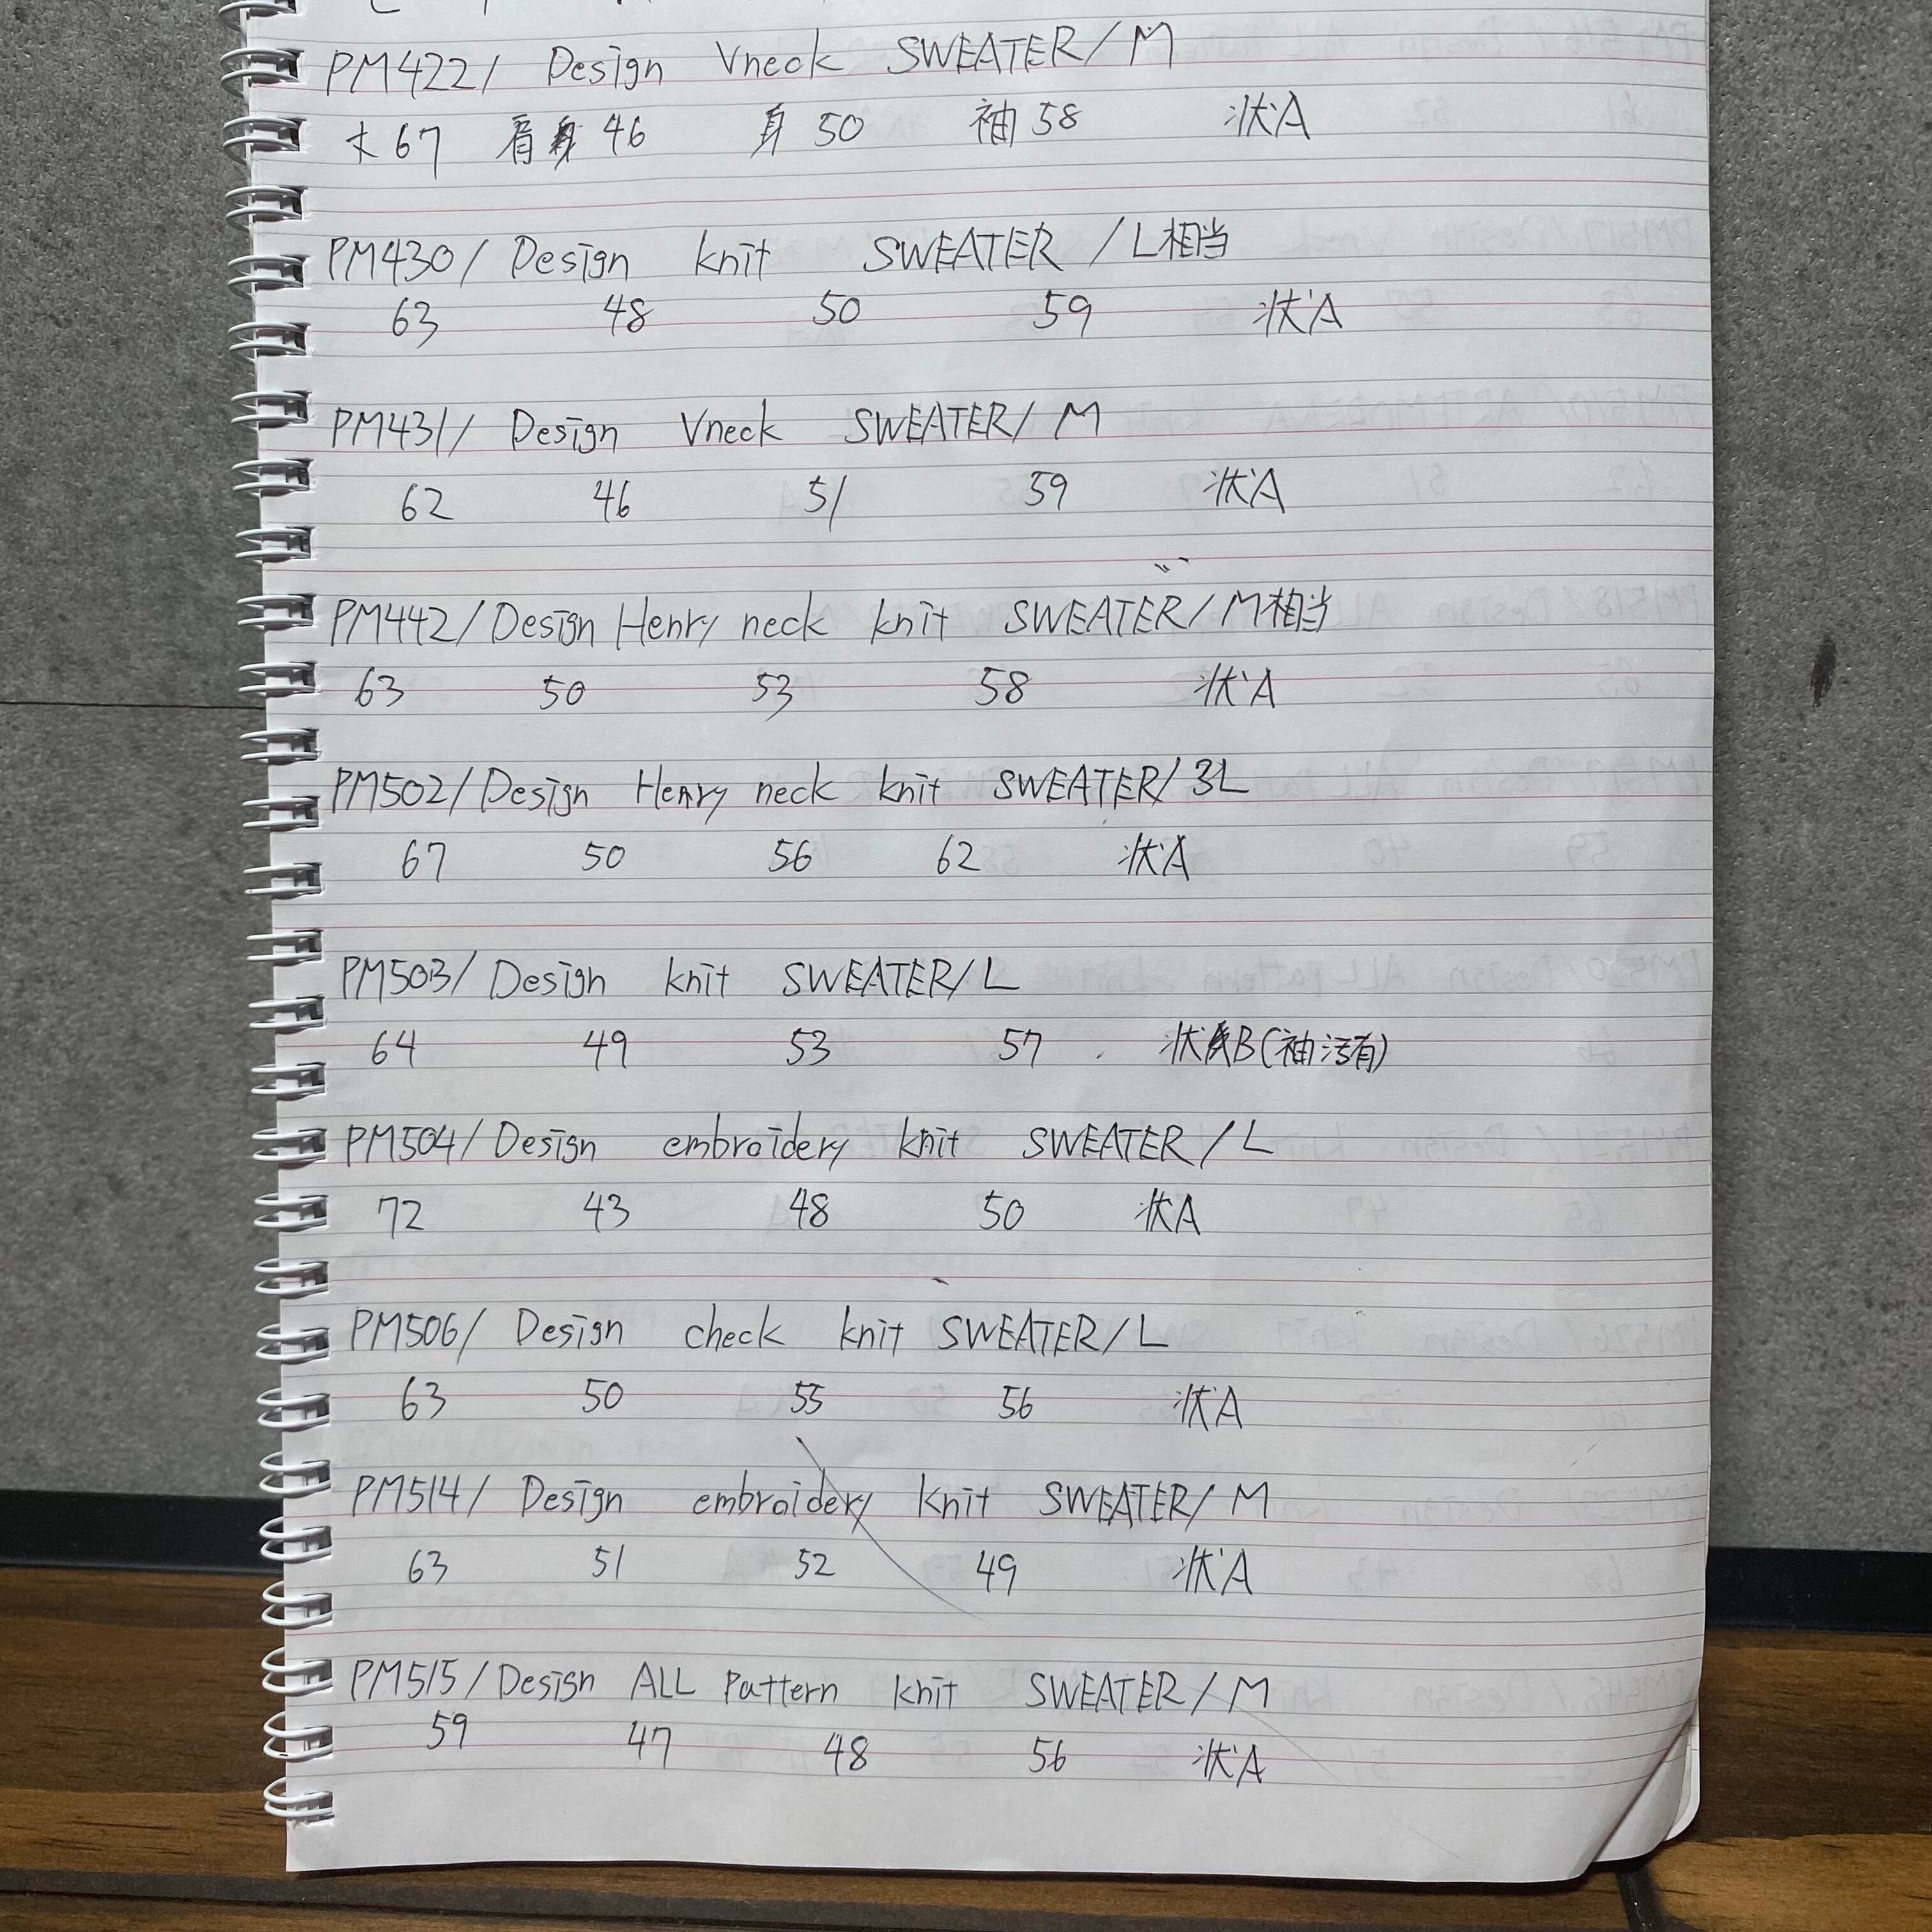 PM422/ Design Vneck SWEATER/M
丈67 肩 46 身 50 袖 58 状A
PM430/ Design knit SWEATER /L相当
63 48 50 59 状A
PM431/ Design Vneck SWEATER/ M
62 46 51 59 状A
PM442/Design Henry neck knit SWEATER/M相当
63 50 53 58 状A
PM502/Design Henry neck knit SWEATER/3L
67 50 56 62 状A
PM503/Design knit SWEATER/L
64 49 53 57 状B(袖汚有)
PM504/Design embroidery knit SWEATER/L
72 43 48 50 状A
PM506/ Design check knit SWEATER/L
63 50 55 56 状A
PM514/ Design embroidery knit SWEATER/M
63 51 52 49 状A
PM515/Design ALL Pattern knit SWEATER/M
59 47 48 56 状A